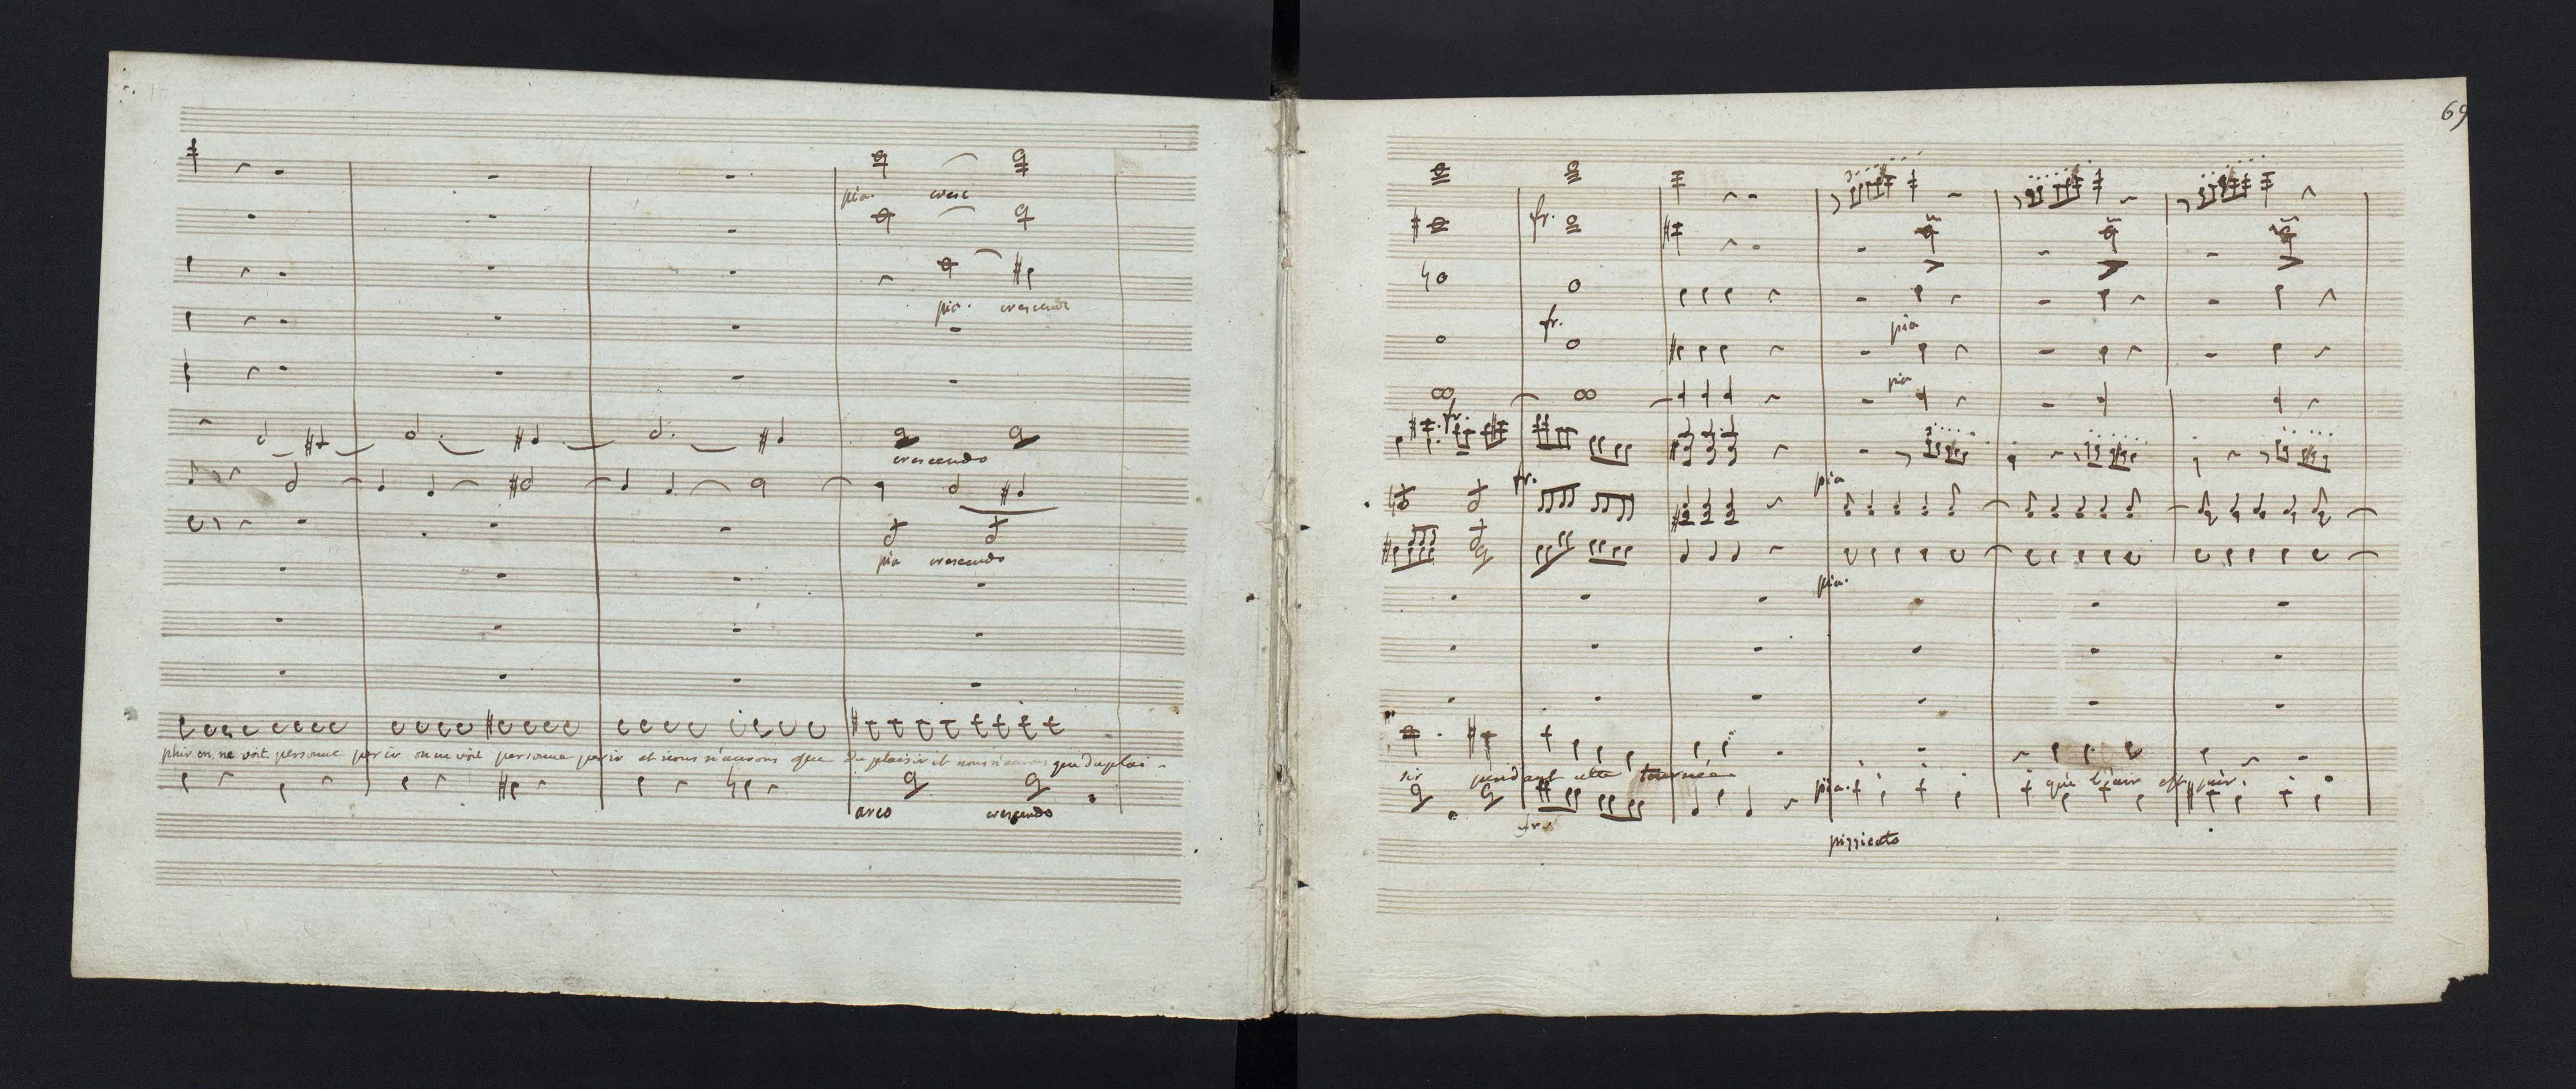 pia. cresc
pia. crescendo
crescendo
pia crescendo
phir on ne voit personne perir on ne voit personne perir et nous n'aurons que du plaisir et nous n'aurons que du plai -
arco crescendo
69
fr.
fr.
pia
pia
fr.
fr. pia
pia.
sir pendant cette tournée que l'air est pur.
pia.
fr.
pizzicato